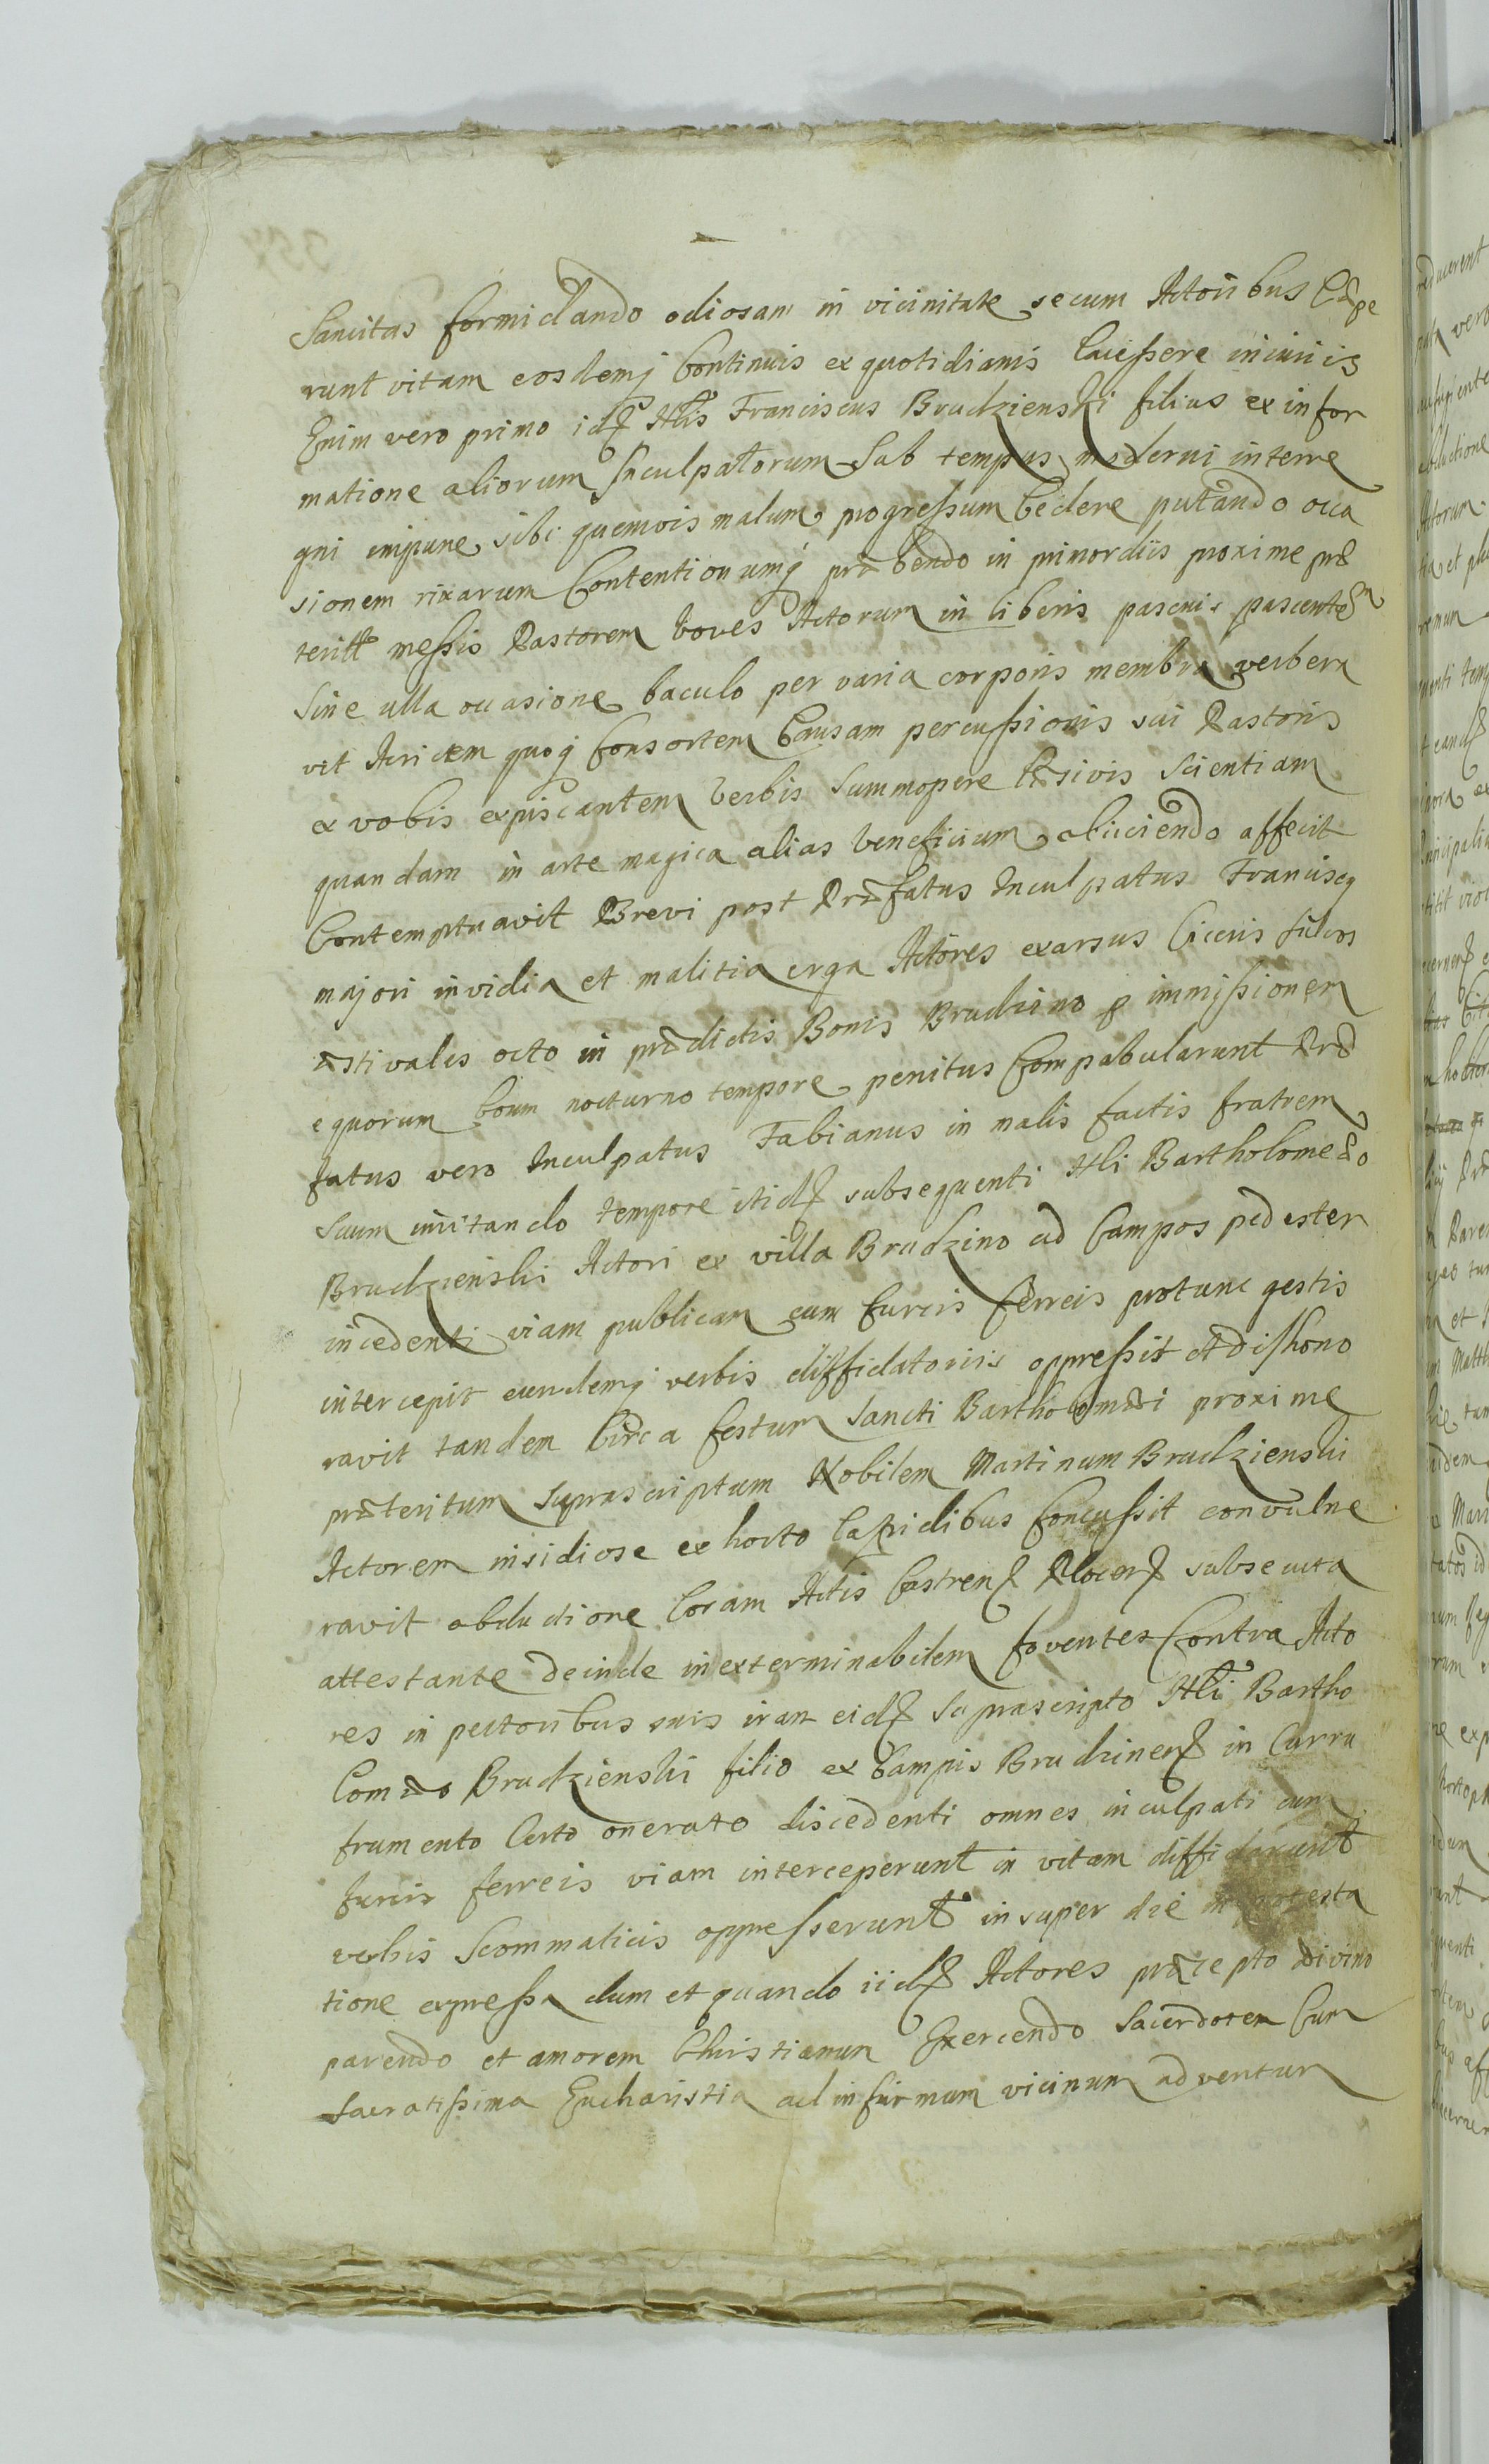 Sancitas formidando odiosam in vicinitate secum Actoribus Cæpe
runt vitam eosdemq Continuis ex quotidianis lacessere iniuriis
Enim vero primo idꝫ Nlis Franciscus Brudzienski filius ex infor
matione aliorum Inculpatorum Sub tempus moderni interre
gni impune sibi quemvis malum progressum Cedere putando occa
sionem rixarum Contentionumq præbendo in primordiis proxime præ
teritæ messis Pastorem boves Actorum in liberis pascuis pascentem
Sine ulla occasione baculo per varia corporis membra verbera
vit Actricem quoq Consortem Causam percussionis sui Pastoris
ex vobis expiscantem verbis Summopere læsivis Scientiam
quandam in arte magica alias veneficium obiiciendo affecit
Contemptuavit Brevi post Præfatus Inculpatus Franciscq
majori invidia et malitia erga Actores exarsus Ciceris sulcos
æstivales octo in prædictis Bonis Brudzino p immissionem
equorum boum nocturno tempore penitus Compabularunt Præ
fatus vero Inculpatus Fabianus in malis factis fratrem
Suum imitando tempore itidꝫ subsequenti Nli Bartholomeæo
Brudzienski Actori ex villa Brudzino ad Campos pedester
incedenti viam publicam cum furcis ferreis protunc gestis
intercepit eundemq verbis diffidatoriis oppressit et dishono
ravit tandem Circa festum Sancti Bartholomæi proxime
præteritum Suprascriptum Nobilem Martinum Brudzienski
Actorem insidiose ex horto lapidibus Concussit convulne
ravit obductione Coram Actis Castrenꝫ Plocenꝫ subsecuta
attestante deinde inexterminabilem foventes Contra Acto
res in pectoribus suis iram eidꝫ Suprascripto Nli Bartho
lomæo Brudzienski filio ex Campis Brudzinenꝫ in Curru
frumento Certo onerato discedenti omnes inculpati cum
furcis ferreis viam interceperunt in vitam diffidarunt
verbis Scommaticis oppresserunt insuper die in protesta
tione expressa dum et quando iidꝫ Actores præcepto Divino
parendo et amorem Christianum Exercendo Sacerdotem Cum
Sacratissima Eucharistia ad infirmum vicinum adventum